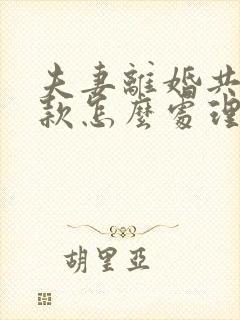 夫妻離婚共
款怎麼處理
胡里亞